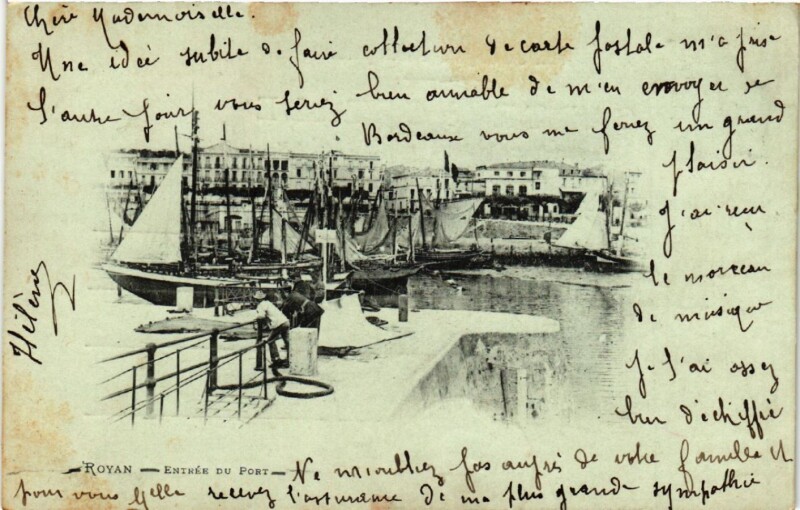 Chère Mademoiselle.
Une idée subite de faire collection de carte postale m'a prise
l'autre jour vous seriez bien aimable de m'en envoyer de
Bordeaux vous me ferez un grand
plaisir.
J'ai reçu
le morceau
de musique
je l'ai assez
bien déchiffré
Ne m'oubliez pas auprès de votre famille et
pour vous Melle recevez l'assurance de ma plus grande sympathie
Hélène
ROYAN — ENTRÉE DU PORT —